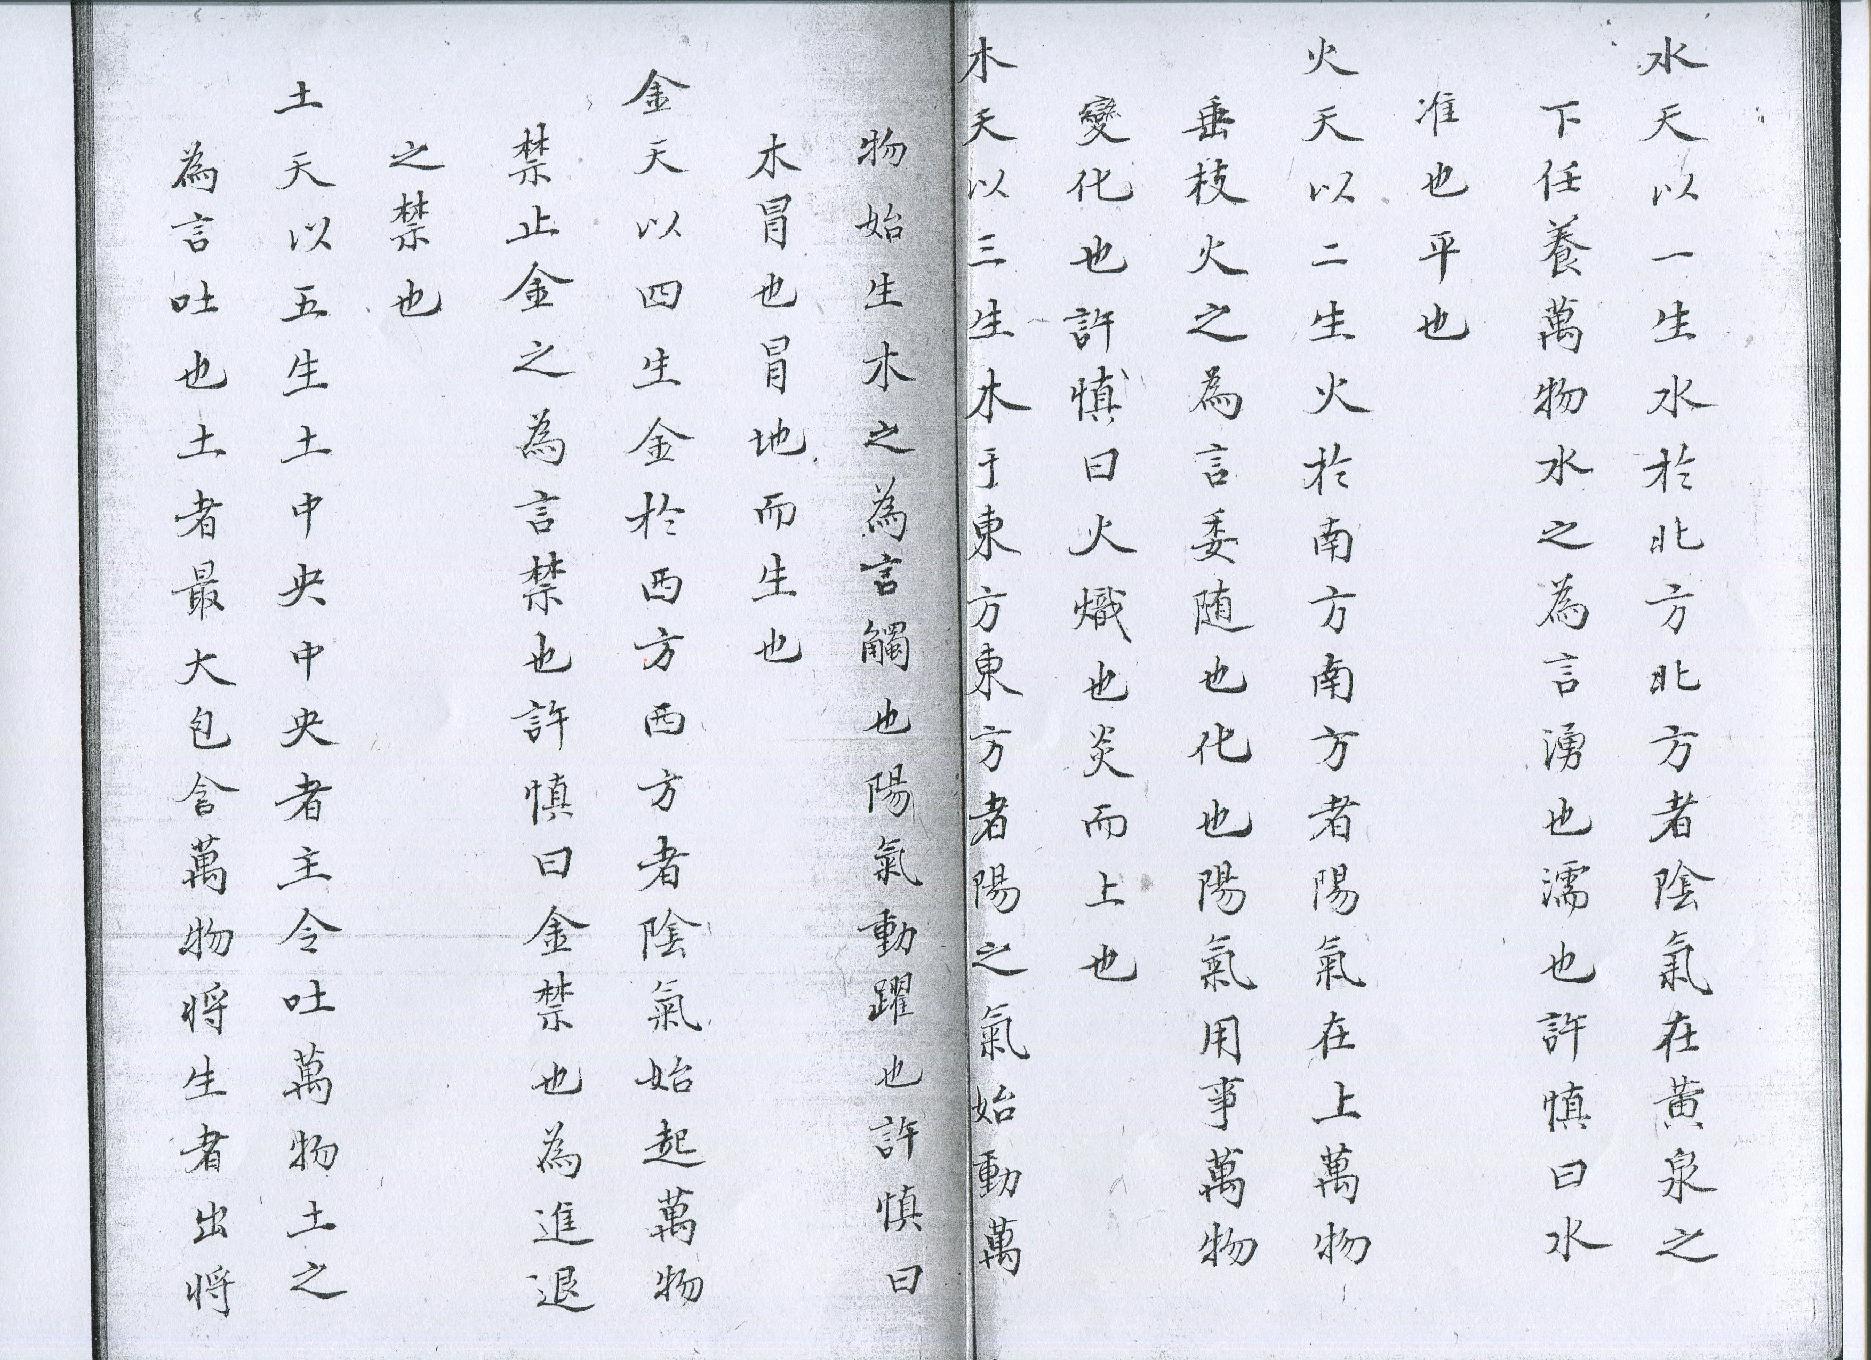 水天以一生水於北方北方者陰氣在黃泉之
下任養萬物水之為言湧也濡也許慎曰水
准也平也
火天以二生火於南方南方者陽氣在上萬物
垂枝火之為言委随也化也陽氣用事萬物
變化也許慎曰火熾也炎而上也
木天以三生木于東方東方者陽之氣始動萬
物始生木之為言觸也陽氣動躍也許慎曰
木冒也冒地而生也
金天以四生金於西方西方者陰氣始起萬物
禁止金之為言禁也許慎曰金禁也為進退
之禁也
土天以五生土中央中央者主令吐萬物土之
為言吐也土者最大包含萬物將生者出將